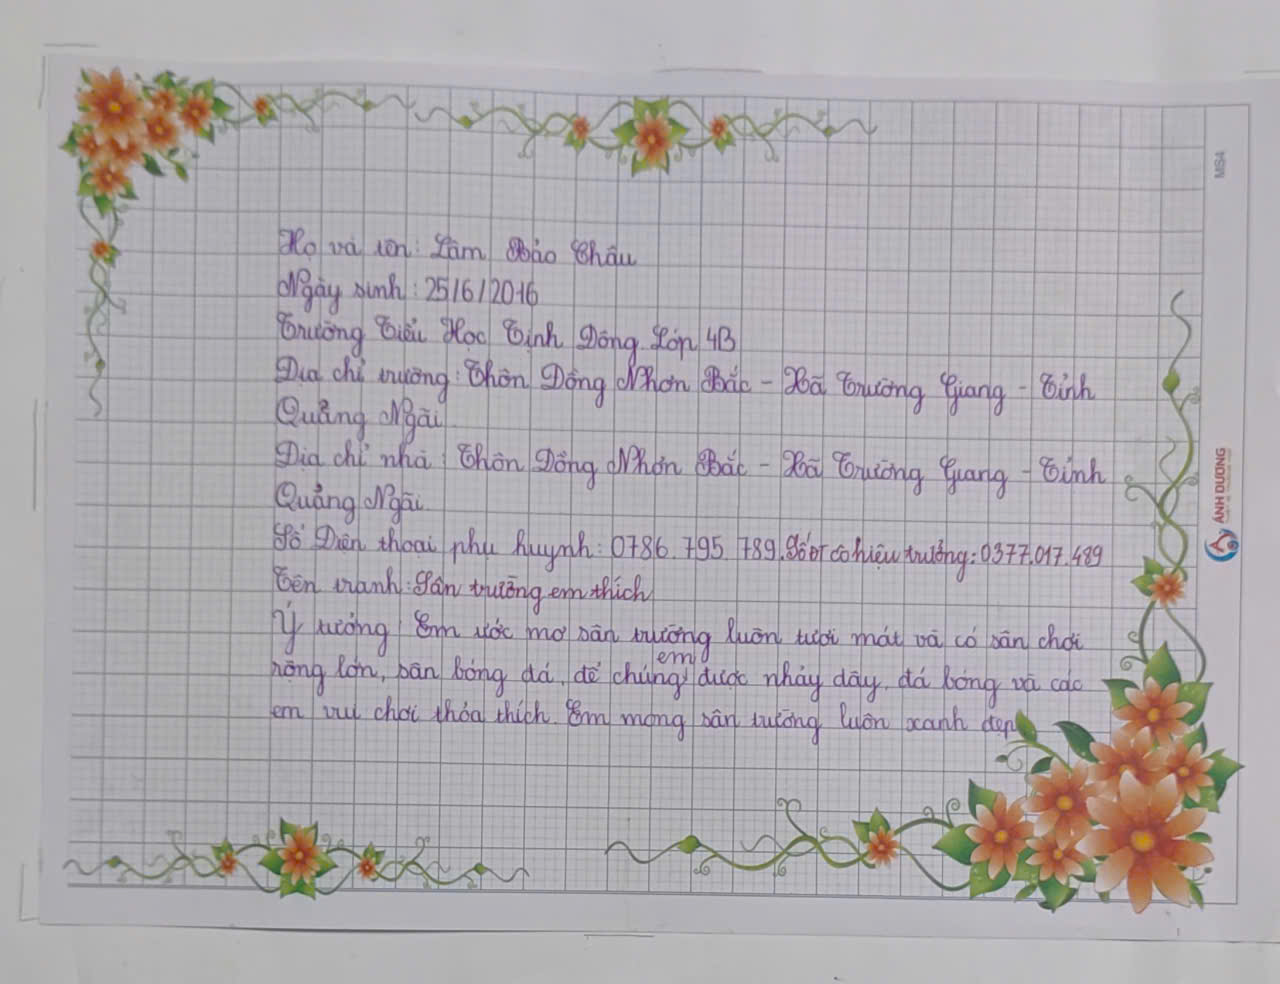 Họ và tên: Lâm Bảo Châu
Ngày sinh: 25/6/2016
Trường Tiểu Học Tịnh Đông Lớp 4B
Địa chỉ trường: Thôn Đồng Nhơn Bắc - Xã Trường Giang - Tỉnh
Quảng Ngãi
Địa chỉ nhà: Thôn Đồng Nhơn Bắc - Xã Trường Giang - Tỉnh
Quảng Ngãi
Số Điện thoại phụ huynh: 0786.795.789. Số ĐT cô hiệu trưởng: 0377.017.489
Tên tranh: Sân trường em thích
Ý tưởng: Em ước mơ sân trường luôn tươi mát và có sân chơi
rộng lớn, sân bóng đá, để chúng em được nhảy dây, đá bóng và các
em vui chơi thỏa thích. Em mong sân trường luôn xanh đẹp
MS4
ÁNH DƯƠNG